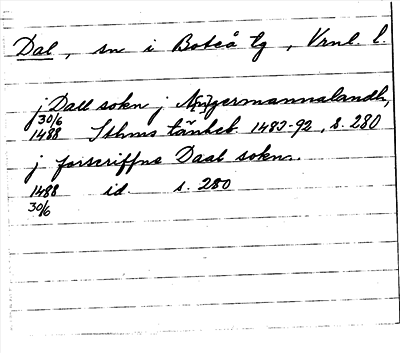 Dal, sn i Boteå tg, Vrnl. l.
j Dall sokn j Angermannalandh,
30/6
1488 Sthms tänkeb. 1483-92, s. 280
j forscriffne Daal sokn.
1488 id. s. 280
30/6